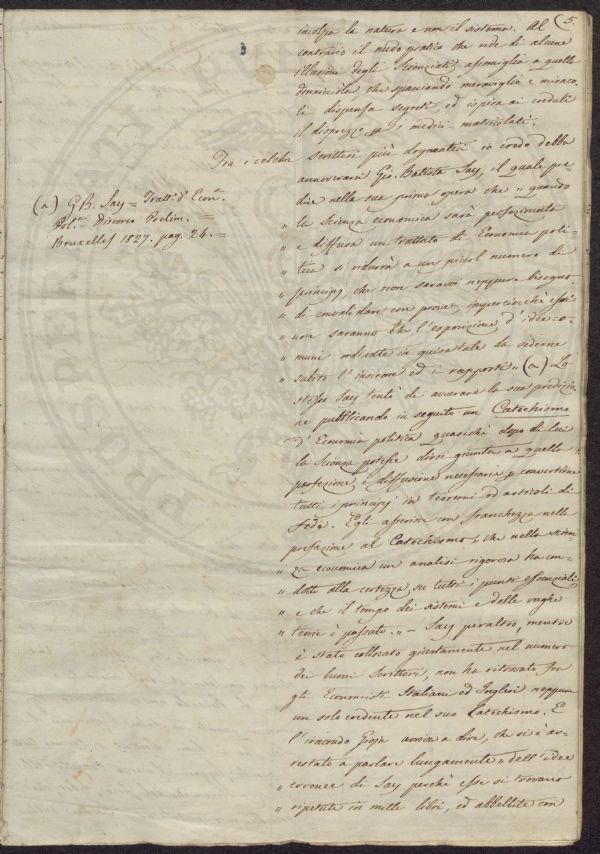 5.
incolpa la natura e non il sistema. Al
contrario il nudo pratico che ride di alcune
illusioni degli Scienziati assomiglia a quella
donniciola che spacciando meraviglie e miraco-
li dispensa segreti ed ispira ai creduli
il disprezzo p i medici matricolati.
Tra i celebri scrittori più dogmatici io credo debba
annoverarsi Gio. Battista Say, il quale pre-
dice nella sua prima opera che „ quando
„ la scienza economica sarà perfezionata
„ e diffusa un trattato di Economia poli-
„ tica si ridurrà a un picol numero di
„ principj che non saravvi neppure bisogno
„ di convalidare con prove, imperciocchè essi
„ non saranno che l'esposizione d'idee co-
„ muni ordinate in guisa tale da vederne
„ subito l'insieme ed i rapporti „ (a) Lo
stesso Say tentò di avverare la sua predizio-
ne pubblicando in seguito un Catechismo
d'Economia politica quasichè dopo di lui
la Scienza potesse dirsi giunta a quella
perfezione e diffusione necessaria p convertire
tutti i principj in teoremi ed articoli di
fede. Egli asserisce con franchezza nella
prefazione al Catechismo, che nella scien-
„ za economica un analisi rigorosa ha con-
„ dotto alla certezza su tutti i punti essenziali
„ e che il tempo dei sistemi e delle vaghe
„ teorie è passato. „ – Say peraltro, mentre
è stato collocato giustamente nel numero
dei buoni Scrittori, non ha ritrovato fra
gli Economisti Italiani ed Inglesi neppure
un solo credente nel suo Catechismo. E
l'iracondo Gioja a dire, che si è ar-
restato a parlare lungamente „ dell'idee
„ erronee di Say perchè esse si trovano
„ ripetute in mille libri, ed abbellite con
(a) G.B. Say = Tratt.º d'Econ.ª
Pol.ª Discorso Prelim. =
Bruxelles 1827. pag. 24. =